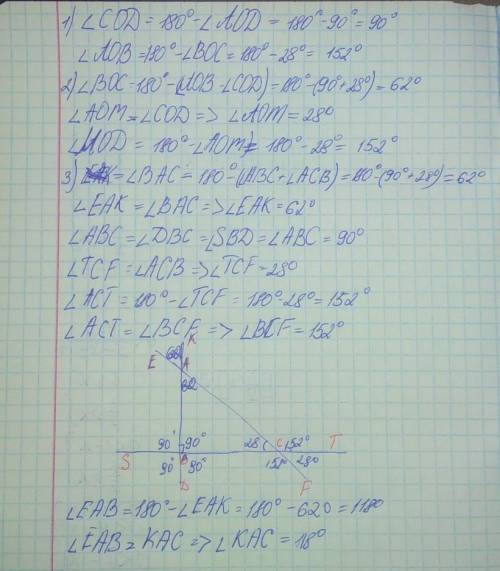 1) ∠COD = 180° - ∠AOD = 180° - 90° = 90°
∠AOB = 180° - ∠BOC = 180° - 28° = 152°
2) ∠BOC = 180° - (AOB - ∠COD) = 180° - (90° + 28°) = 62°
∠AOM = ∠COD => ∠AOM = 28°
∠MOD = 180° - ∠AOM = 180° - 28° = 152°
3) = ∠BAC = 180° - (ABC + ∠ACB) = 180° - (90° + 28°) = 62°
∠EAK = ∠BAC => ∠EAK = 62°
∠ABC = ∠DBC = ∠SBD = ∠ABC = 90°
∠TCF = ∠ACB => ∠TCF = 28°
∠ACT = 180° - ∠TCF = 180° - 28° = 152°
∠ACT = ∠BCF => ∠BCF = 152°
K
E A
62
90° 90° 28 C 152° T
S B
90° 90° 152° 28°
D F
∠EAB = 180° - ∠EAK = 180° - 620 = 118°
∠EAB = KAC => ∠KAC = 118°